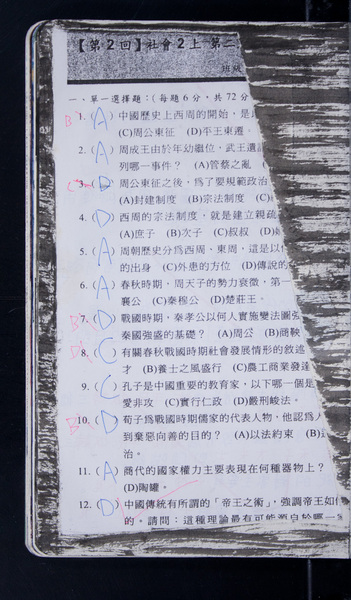 【第2回】社會2上 第二
班級
一、單一選擇題：(每題6分，共72分
B 1. (A) 中國歷史上西周的開始，是
(C)周公東征 (D)平王東遷。
2. (A) 周成王由於年幼繼位，武王遺
列哪一事件？ (A)管蔡之亂 (
C 3. (D) 周公東征之後，為了要規範政治
(A)封建制度 (B)宗法制度 (C)
4. (D) 西周的宗法制度，就是建立親疏
(A)庶子 (B)次子 (C)叔叔 (D)
5. (A) 周朝歷史分為西周、東周，這是以
的出身 (C)外患的方位 (D)傳說的
6. (A) 春秋時期，周天子的勢力衰微，第一
襄公 (C)秦穆公 (D)楚莊王。
B 7. (D) 戰國時期，秦孝公以何人實施變法圖強
秦國強盛的基礎？ (A)周公 (B)商鞅
8. (C) 有關春秋戰國時期社會發展情形的敘述
才 (B)養士之風盛行 (C)農工商業發達
9. (C) 孔子是中國重要的教育家，以下哪一個是
愛非攻 (C)實行仁政 (D)嚴刑峻法。
10. (D) 荀子為戰國時期儒家的代表人物，他認為人
到棄惡向善的目的？ (A)以法約束 (B)
治。
11. (A) 商代的國家權力主要表現在何種器物上？
(D)陶罐。
12. (D) 中國傳統有所謂的「帝王之術」，強調帝王如何
的。請問：這種理論最有可能源自於哪一